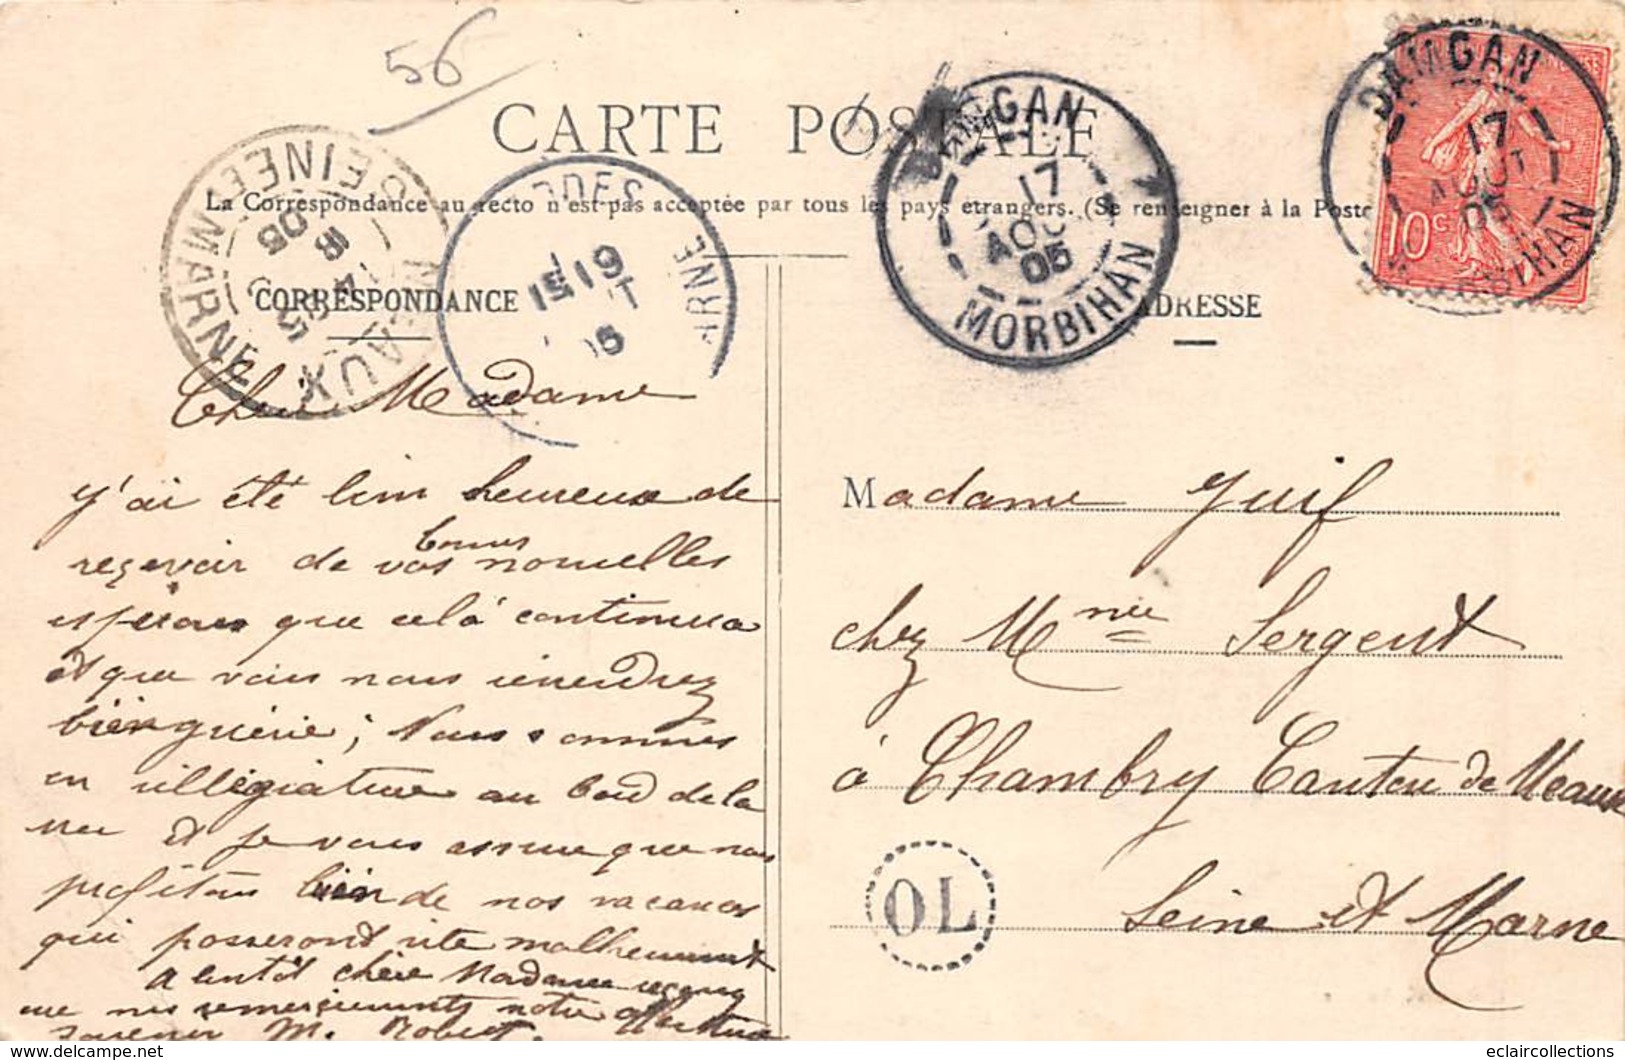 56
CARTE POSTALE
La Correspondance au recto n'est pas acceptée par tous les pays étrangers. (Se renseigner à la Poste
CORRESPONDANCE
ADRESSE
MEAUX
SEINE ET MARNE
18
05
15 19
ARNE
DAMGAN
17
AOUT
05
MORBIHAN
DAMGAN
17
AOUT
05
MORBIHAN
10c
Chère Madame
j'ai été bien heureuse de
reçevoir de vos bonnes nouvelles
espérons que celà continuera
et que vous nous reviendrez
bien guérie; Nous sommes
en villégiature au bord de la
mer et je vous assure que nous
profitons bien de nos vacances
qui passeront vite malheureusement
a bientôt chère Madame recevez
avec nos remerciements notre affectueux
souvenir M. Robert.
Madame Juif
chez Mme Sergent
à Chambry Canton de Meaux
Seine et Marne
OL
eclaircollections
© www.delcampe.net